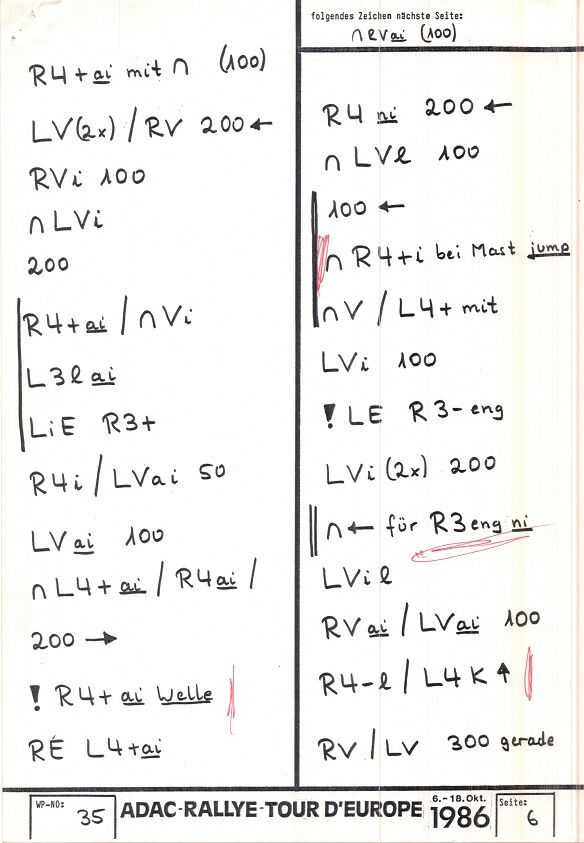 R4+ai mit ∩ (100)
LV(2x) / RV 200 ←
RVi 100
∩ LVi
200
R4+ai / ∩ Vi
L3l ai
LiE R3+
R4i / LVai 50
LVai 100
∩ L4+ai / R4ai /
200 →
! R4+ai Welle
RÉ L4+ai
folgendes Zeichen nächste Seite:
∩ RVai (100)
R4 ni 200 ←
∩ LVl 100
100 ←
∩ R4+i bei Mast jump
∩V / L4+ mit
LVi 100
! LE R3-eng
LVi (2x) 200
∩ ← für R3eng ni
LVil
RVai / LVai 100
R4-l / L4K ↑
RV / LV 300 gerade
WP-NO: 35
ADAC-RALLYE-TOUR D'EUROPE
6.-18.Okt.
1986
Seite: 6